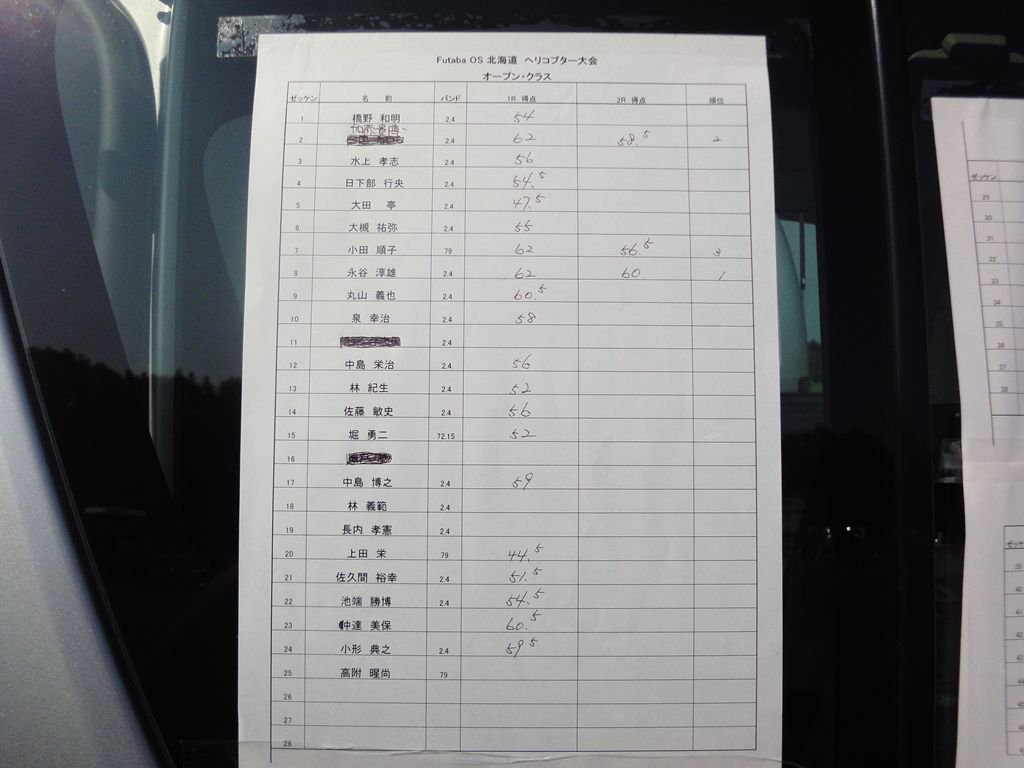 Futaba OS 北海道 ヘリコプター大会
オープン・クラス
ゼッケン 名 前 バンド 1R 得点 2R 得点 順位
1 橋野 和明 2.4 54
2 2.4 62 58.5 2
3 水上 孝志 2.4 56
4 日下部 行央 2.4 54.5
5 大田 亭 2.4 47.5
6 大槻 祐弥 2.4 55
7 小田 順子 79 62 56.5 3
8 永谷 淳雄 2.4 62 60. 1
9 丸山 義也 2.4 60.5
10 泉 幸治 2.4 58
11 2.4
12 中島 栄治 2.4 56
13 林 紀生 2.4 52
14 佐藤 敏史 2.4 56
15 堀 勇二 72.15 52
16
17 中島 博之 2.4 59
18 林 義範 2.4
19 長内 孝憲 2.4
20 上田 栄 79 44.5
21 佐久間 裕幸 2.4 51.5
22 池端 勝博 2.4 54.5
23 仲達 美保 60.5
24 小形 典之 2.4 59.5
25 高附 曜尚 79
26
27
28
ゼッケン
29
30
31
32
33
35
36
37
38
39
40
41
42